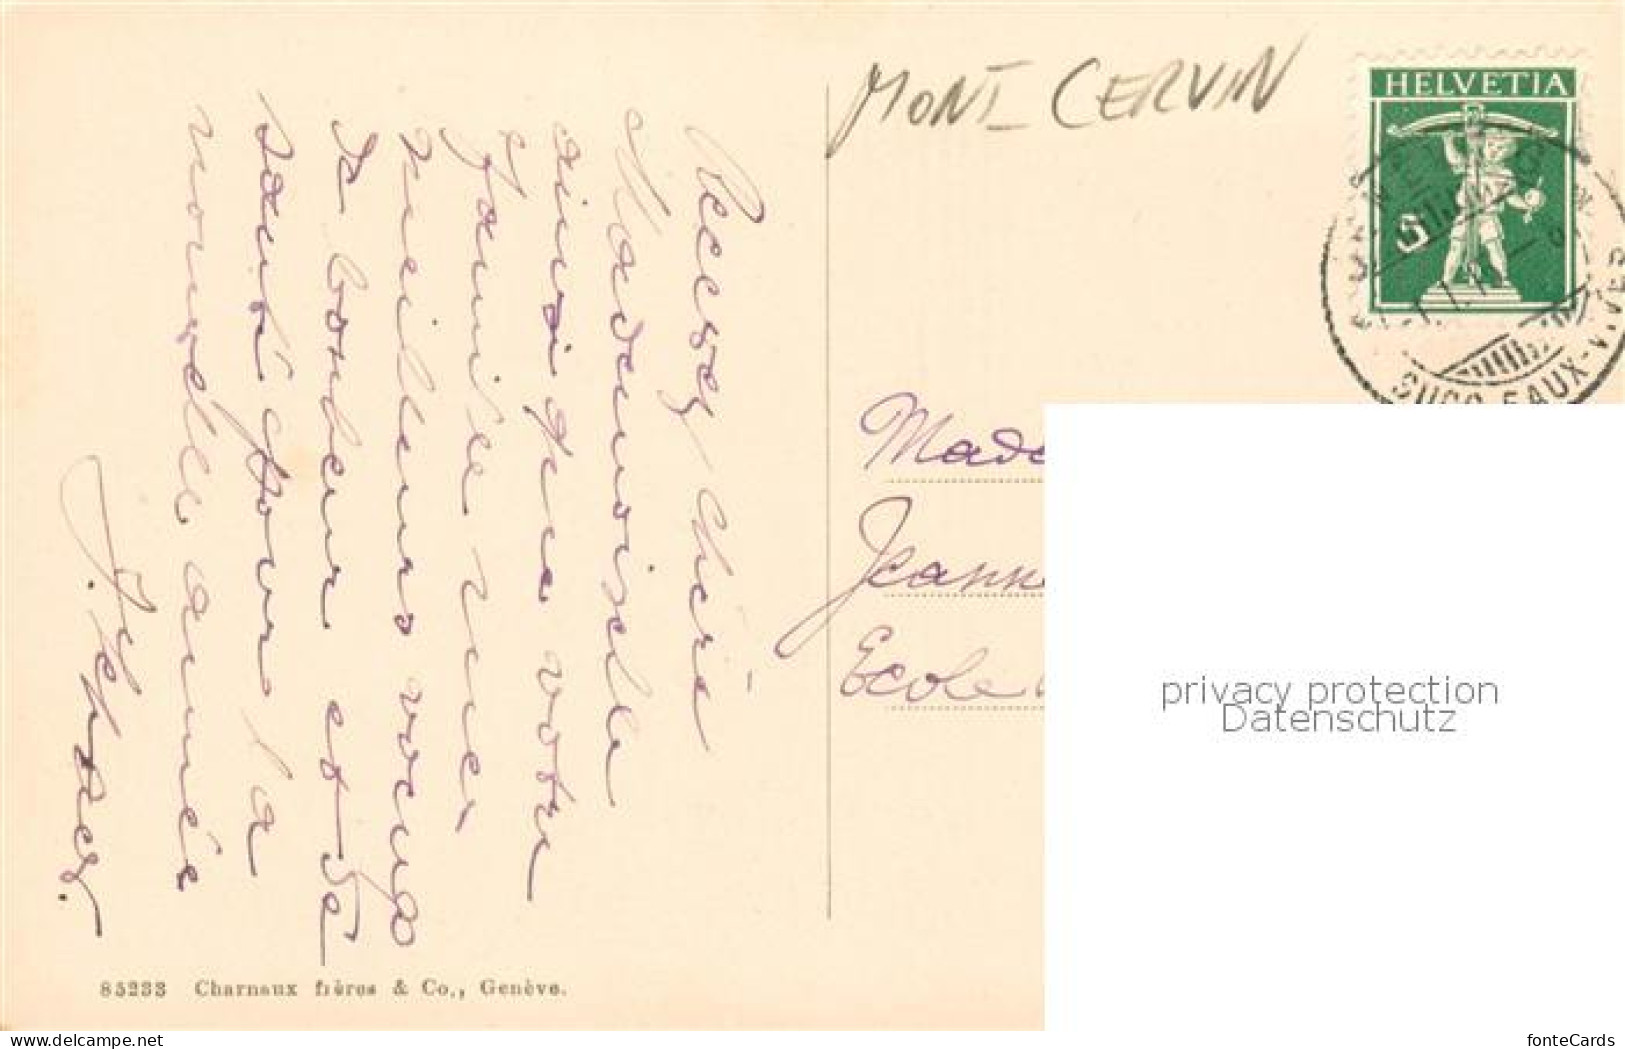 MONT CERVIN
HELVETIA
5
SUCC. EAUX-VIVES
Recevez chère
Mademoiselle
ainsi que votre
famille mes
meilleurs voeux
de bonheur et de
santé pour la
nouvelle année
Made
Jeann
Ecole
privacy protection
Datenschutz
85233 Charnaux frères & Co., Genève.
www.delcampe.net
fonteCards